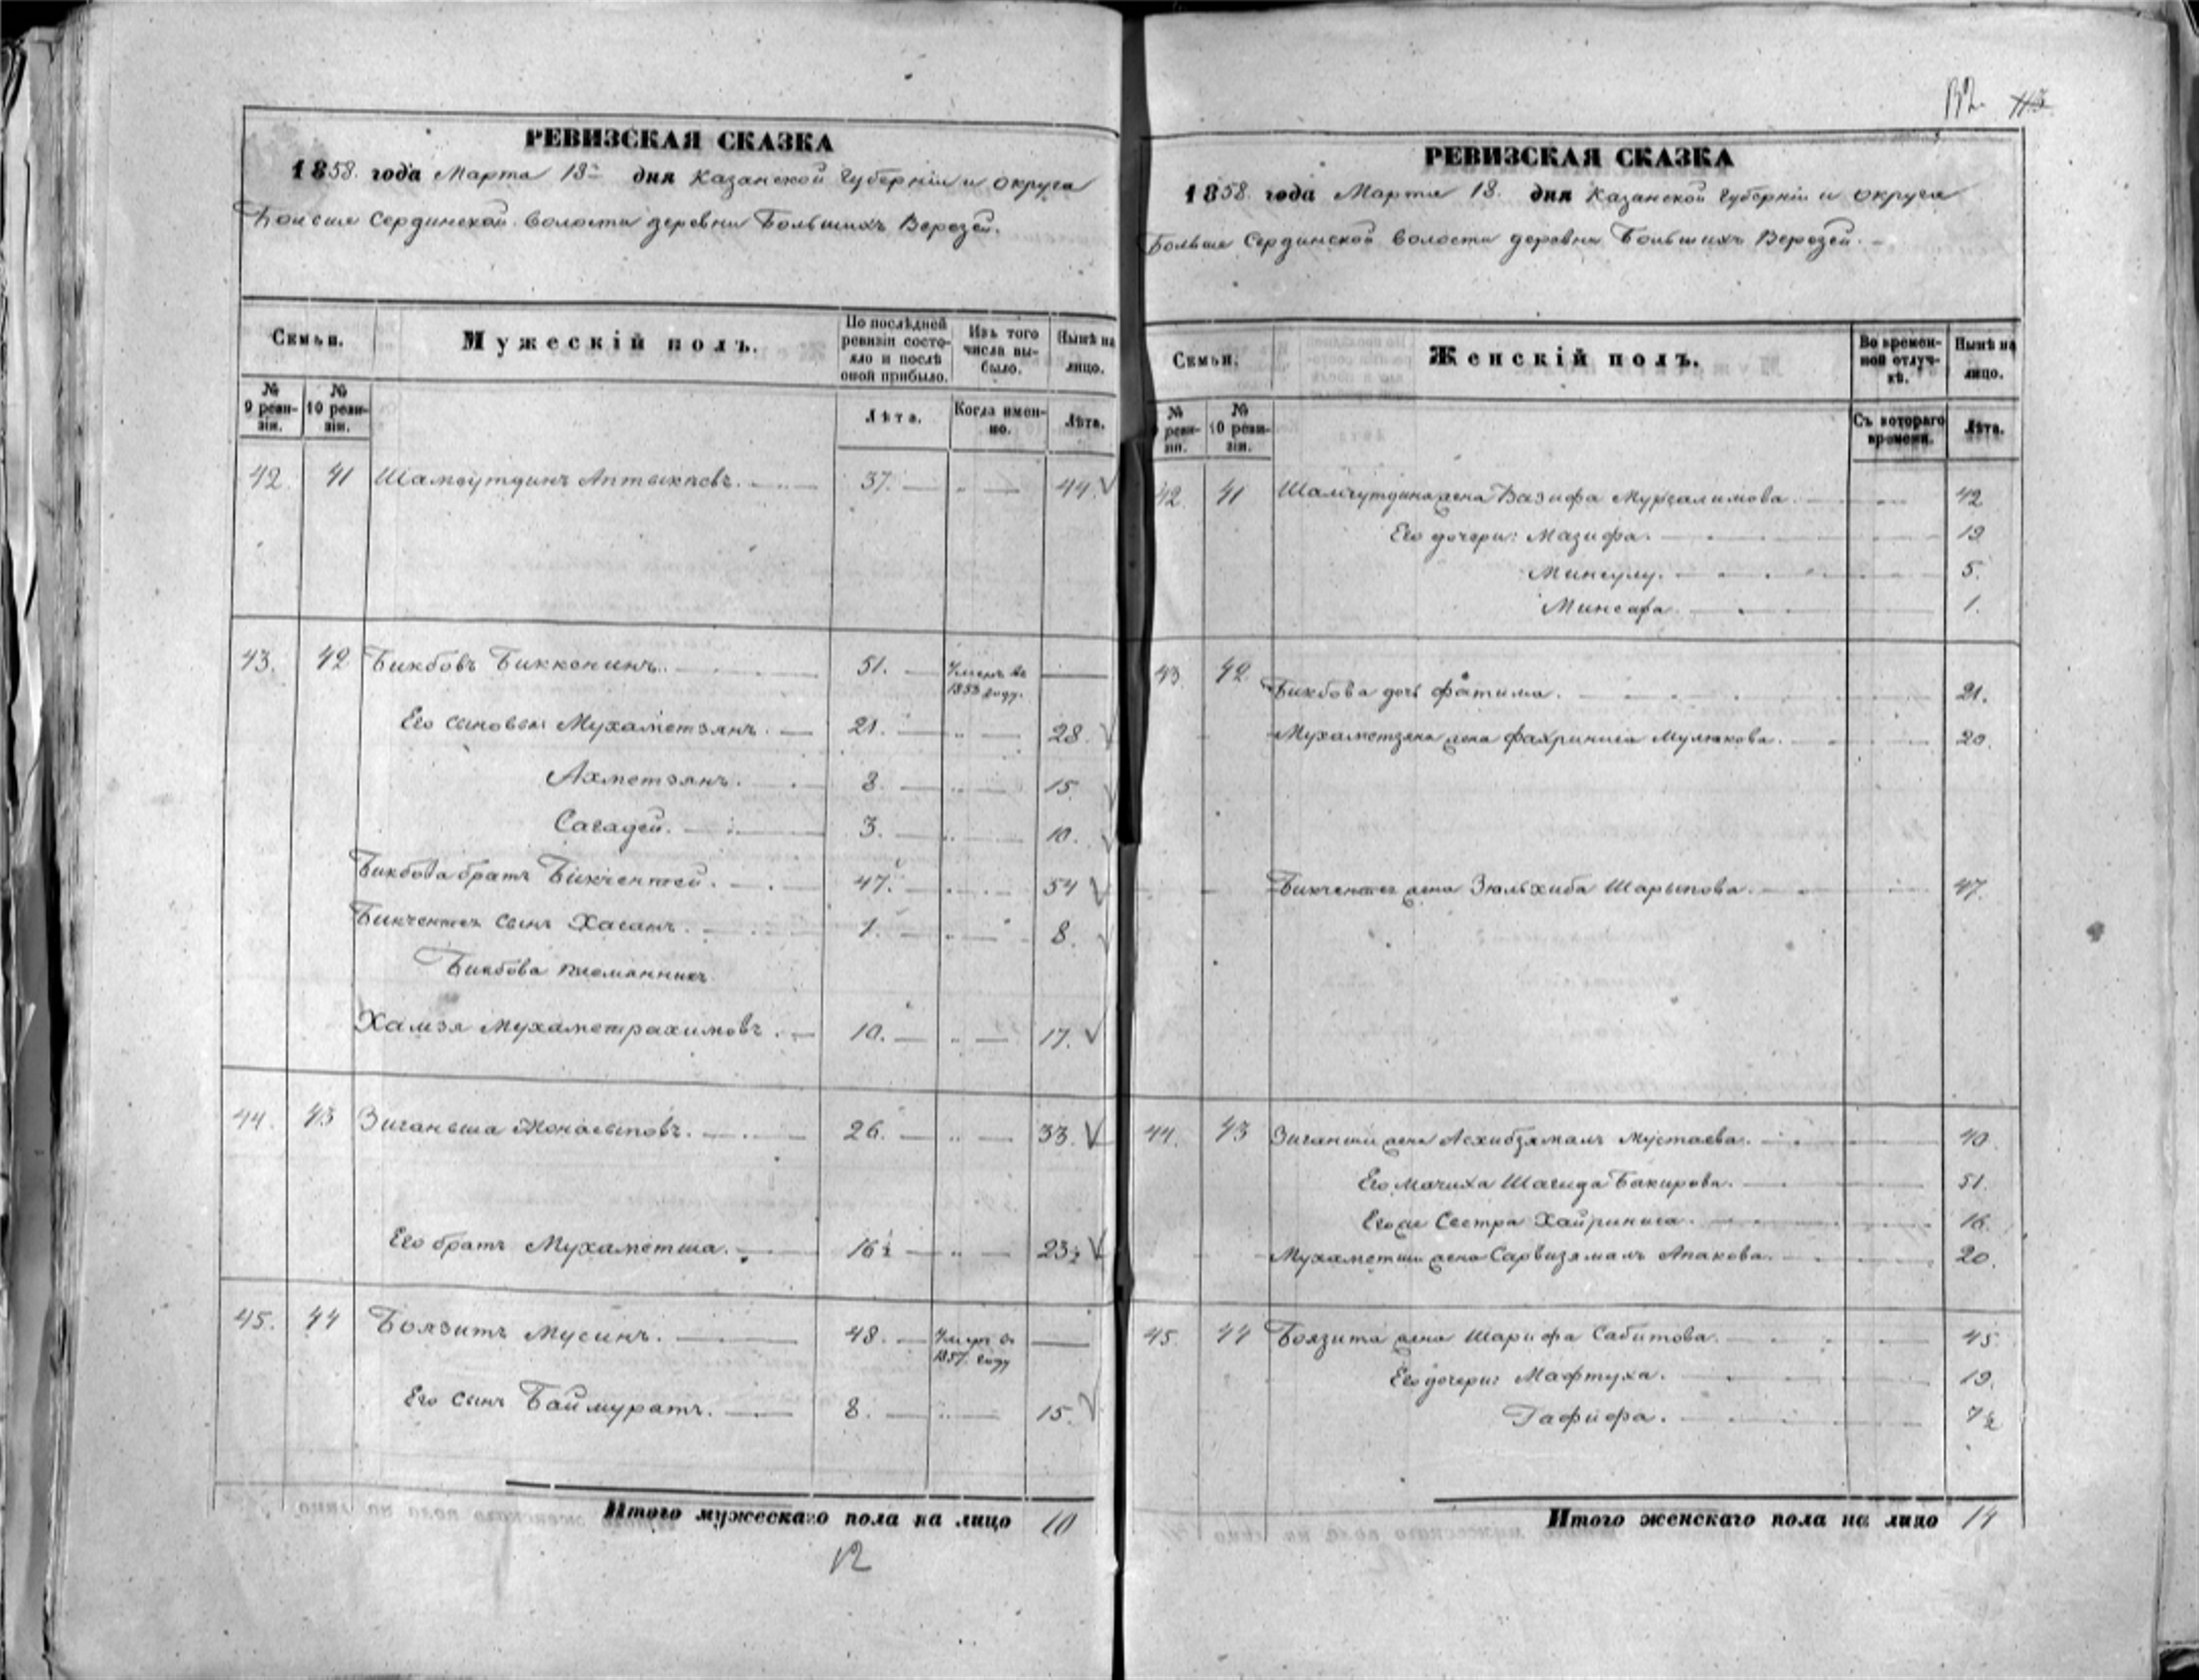 132. 113
РЕВИЗСКАЯ СКАЗКА
1858. года Марта 18го дня Казанской Губерніи и округа
Больше Сердинской волости деревни Большихъ Верезей.
Семьи. Мужескій полъ. По послѣдней ревизіи состояло и послѣ оной прибыло. Изъ того числа выбыло. Нынѣ на лицо.
№ 9 ревизіи. № 10 ревизіи. Лѣта. Когда именно. Лѣта.
42. 41 Шамсутдинъ 37. 44.
43. 42 Бикбовъ Биккенинъ. 51. Умеръ въ 1853 году.
Его сыновья: Мухаметзянъ. 21. 28.
Ахметзянъ. 8. 15.
Сагадей. 3. 10.
Бикбова братъ Бикчентей. 47. 54
Бикчентея сынъ Хасанъ. 1. 8.
Бикбова племянникъ
Хамзя Мухаметрахимовъ. 10. 17.
44. 43 Зиганьша 26. 33.
Его братъ Мухаметша. 16½ 23½
45. 44 Боязитъ Мусинъ. 48. Умеръ въ 1857. году
Его сынъ Баймуратъ. 8. 15.
Итого мужескаго пола на лицо 10
12
РЕВИЗСКАЯ СКАЗКА
1858. года Марта 18. дня Казанской Губерніи и округа
Больше Сердинской волости деревни Большихъ Верезей.
Семьи. Женскій полъ. Во временной отлучкѣ. Нынѣ на лицо.
№ ревизіи. № 10 ревизіи. Съ котораго времени. Лѣта.
42. 41 Шамсутдина жена Вазифа Мурсалимова. 42
Его дочери: Мазифа. 19
Минсулу. 5.
Минсафа. 1.
43. 42. Бикбова дочь Фатима. 21.
Мухаметзяна жена Фахриниса Мулюкова. 20.
Бикчентея жена Зюльхиба Шарыпова. 47.
44. 43 Зиганши жена Асхибзямалъ Мустаева. 40.
Его мачиха Шагида Бакирова. 51.
Его же Сестра Хайриниса. 16.
Мухаметши жена Сарвизямалъ Апакова. 20.
45. 44 Боязита жена Шарифа Сабитова. 45
Его дочери: Мафтуха. 19.
Гафифа. 7½
Итого женскаго пола на лицо 14